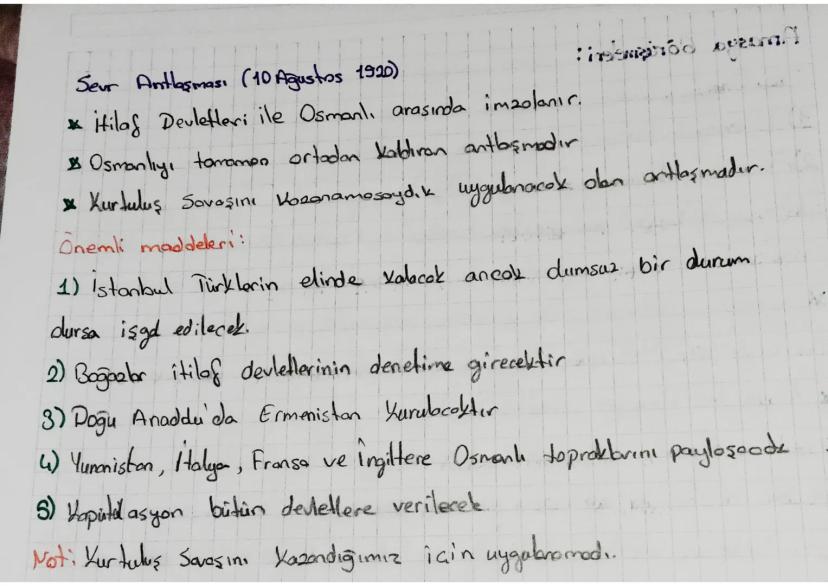 Sevr Antlaşması (10 Ağustos 1920)
* İtilaf Devletleri ile Osmanlı arasında imzalanır.
* Osmanlıyı tamamen ortadan kaldıran antlaşmadır
* Kurtuluş Savaşını kazanamasaydık uygulanacak olan antlaşmadır.
Önemli maddeleri:
1) İstanbul Türklerin elinde kalacak ancak dumsuz bir durum
dursa işgal edilecek.
2) Boğazlar itilaf devletlerinin denetime girecektir
3) Doğu Anadolu'da Ermenistan kurulacaktır
4) Yunanistan, İtalya, Fransa ve İngiltere Osmanlı topraklarını paylaşacak
5) Kapütülasyon bütün devletlere verilecek
Not: Kurtuluş Savaşını kazandığımız için uygulanamadı.